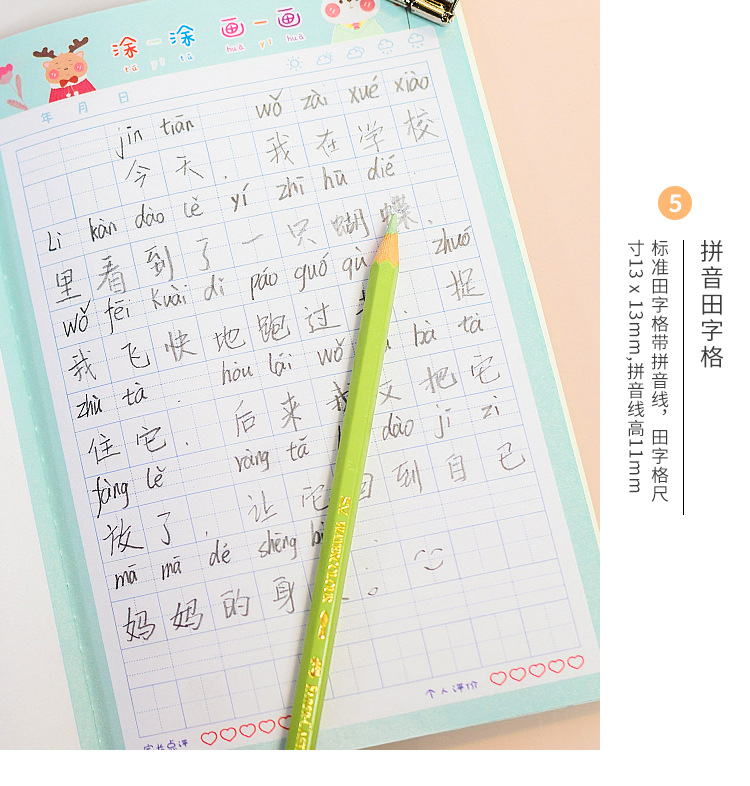 涂一涂 画一画
年 月 日
jīn tiān wǒ zài xué xiào
今天，我在学校
Li kàn dào lě yí zhī hū dié
里看到了一只蝴蝶，
wǒ fēi kuài di páo guó qù zhuó
我飞快地跑过，捉
zhù tà hòu lái wǒ bà tà
住它，后来我又把它
fàng lě ràng tā dào jī zì
放了，让它回到自己
mā mā dé shēng
妈妈的身。
个人评价
家长点评
SV WATERCOLOUR
5
拼音田字格
标准田字格带拼音线，田字格尺
寸13x13mm,拼音线高11mm